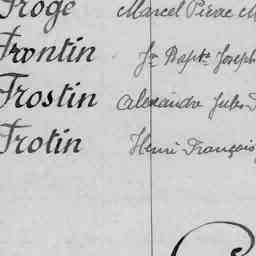 Froge Marcel Pierre M
Frontin Jn Bapte Joseph
Frostin Alexandre Jules
Frotin Henri François